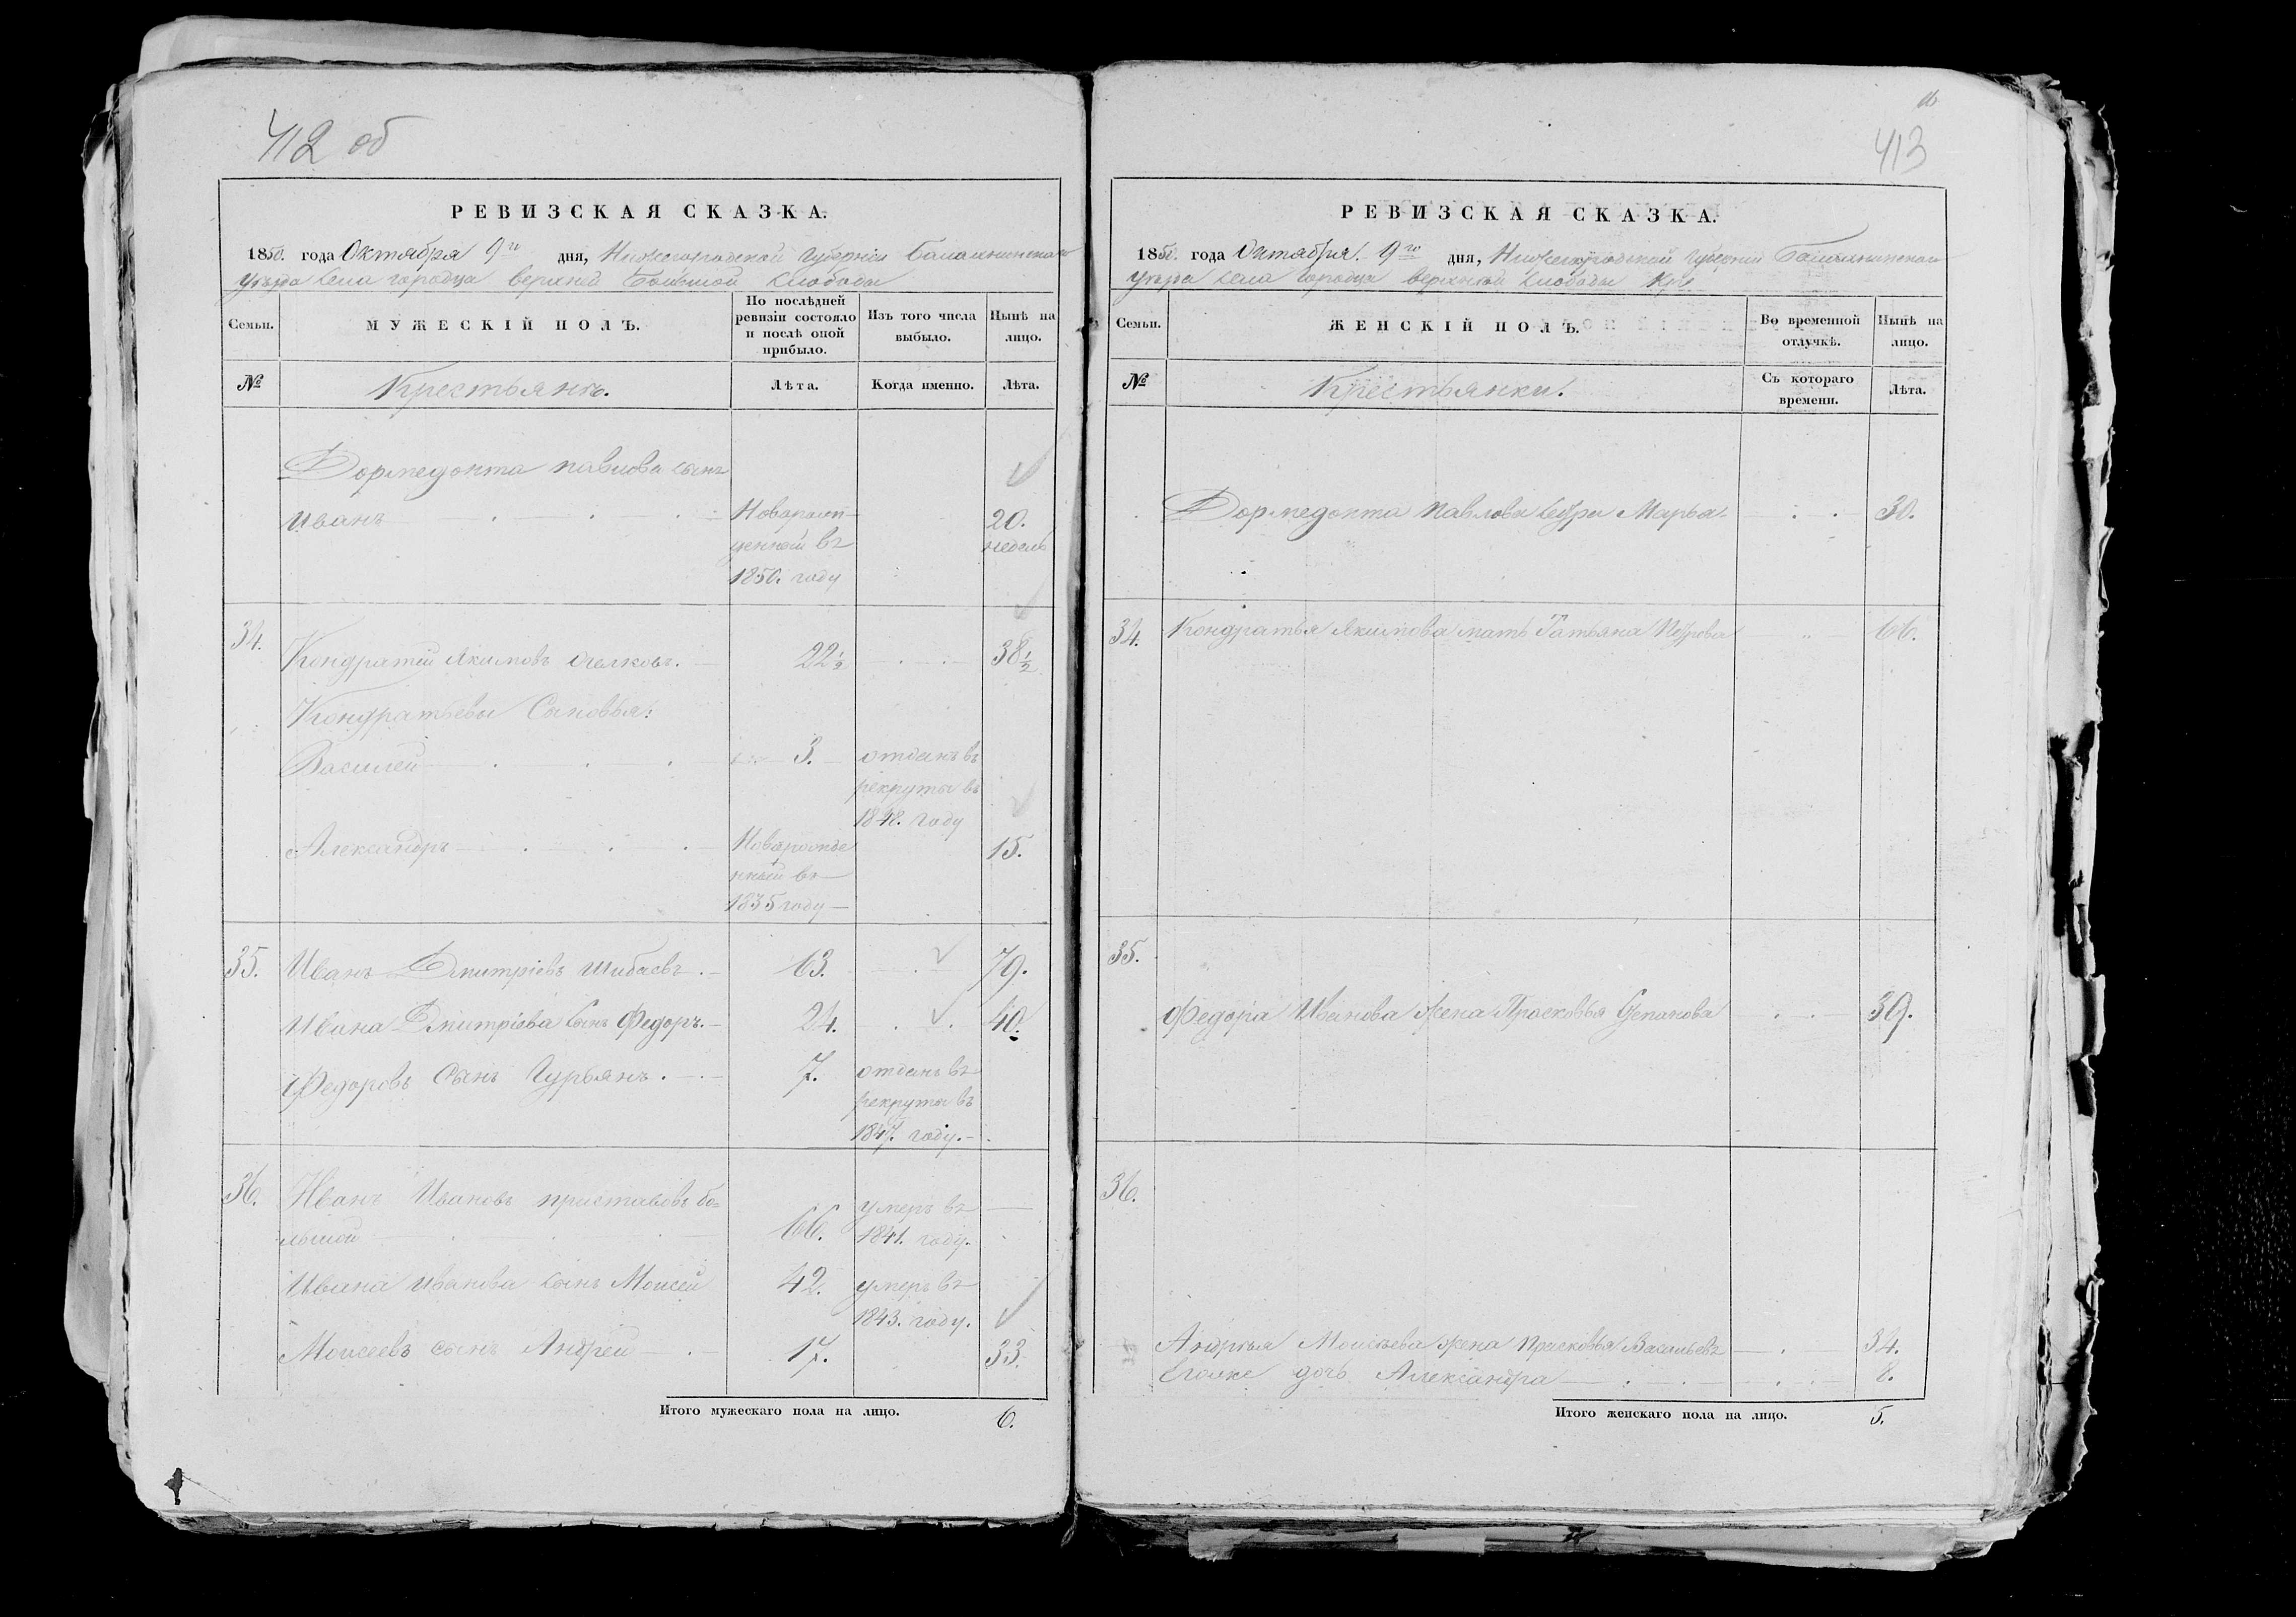 412 об
РЕВИЗСКАЯ СКАЗКА.
1850. года Октября 9го дня, Нижегородской Губернiи Балахнинскаго
Уѣзда Села Городца верхней Большой Слободы
Семьи.
МУЖЕСКІЙ ПОЛЪ.
По послѣдней
ревизіи состояло
и послѣ оной
прибыло.
Изъ того числа
выбыло.
Нынѣ на
лицо.
№
Крестьянъ.
Лѣта.
Когда именно.
Лѣта.
Дормедонта павлова сынъ
Иванъ
Новарож
денной въ
1850. году
20.
недель
34.
Кондратiй Якимовъ
22 1/2
38 1/2
Кондратьевы Сыновья:
Василей
3.
отданъ въ
рекруты въ
1848. году
Александръ
Новарожде
нной въ
1835 году
15.
35.
Иванъ Дмитрiевъ Шибаевъ.
63.
79.
Ивана Дмитрiева Сынъ Федоръ.
24.
40.
Федоровъ Сынъ Гурьянъ.
7.
отданъ въ
рекруты въ
1847. году.
36.
Иванъ Ивановъ приставовъ бо=
льшой
66.
умеръ въ
1841. году.
Ивана Иванова Сынъ Моисей
42.
умеръ въ
1843. году.
Моисеевъ сынъ Андрей
17.
33.
Итого мужескаго пола на лицо.
6.
413
РЕВИЗСКАЯ СКАЗКА.
1850. года Октября 9го дня, Нижегородской Губернiи Балахнинскаго
Уѣзда Села Городца верхней Слободы
Семьи.
ЖЕНСКІЙ ПОЛЪ.
Во временной
отлучкѣ.
Нынѣ на
лицо.
№
Крестьянки.
Съ котораго
времени.
Лѣта.
Дормедонта Павлова Марья
30.
34.
Кондратья Якимова мать Татьяна Петрова
66.
35.
Федора Иванова Жена Прасковья Степанова
39.
36.
Андрея Моисѣева жена Прасковья Васильевъ
34.
дочь Александра
8.
Итого женскаго пола на лицо.
5.